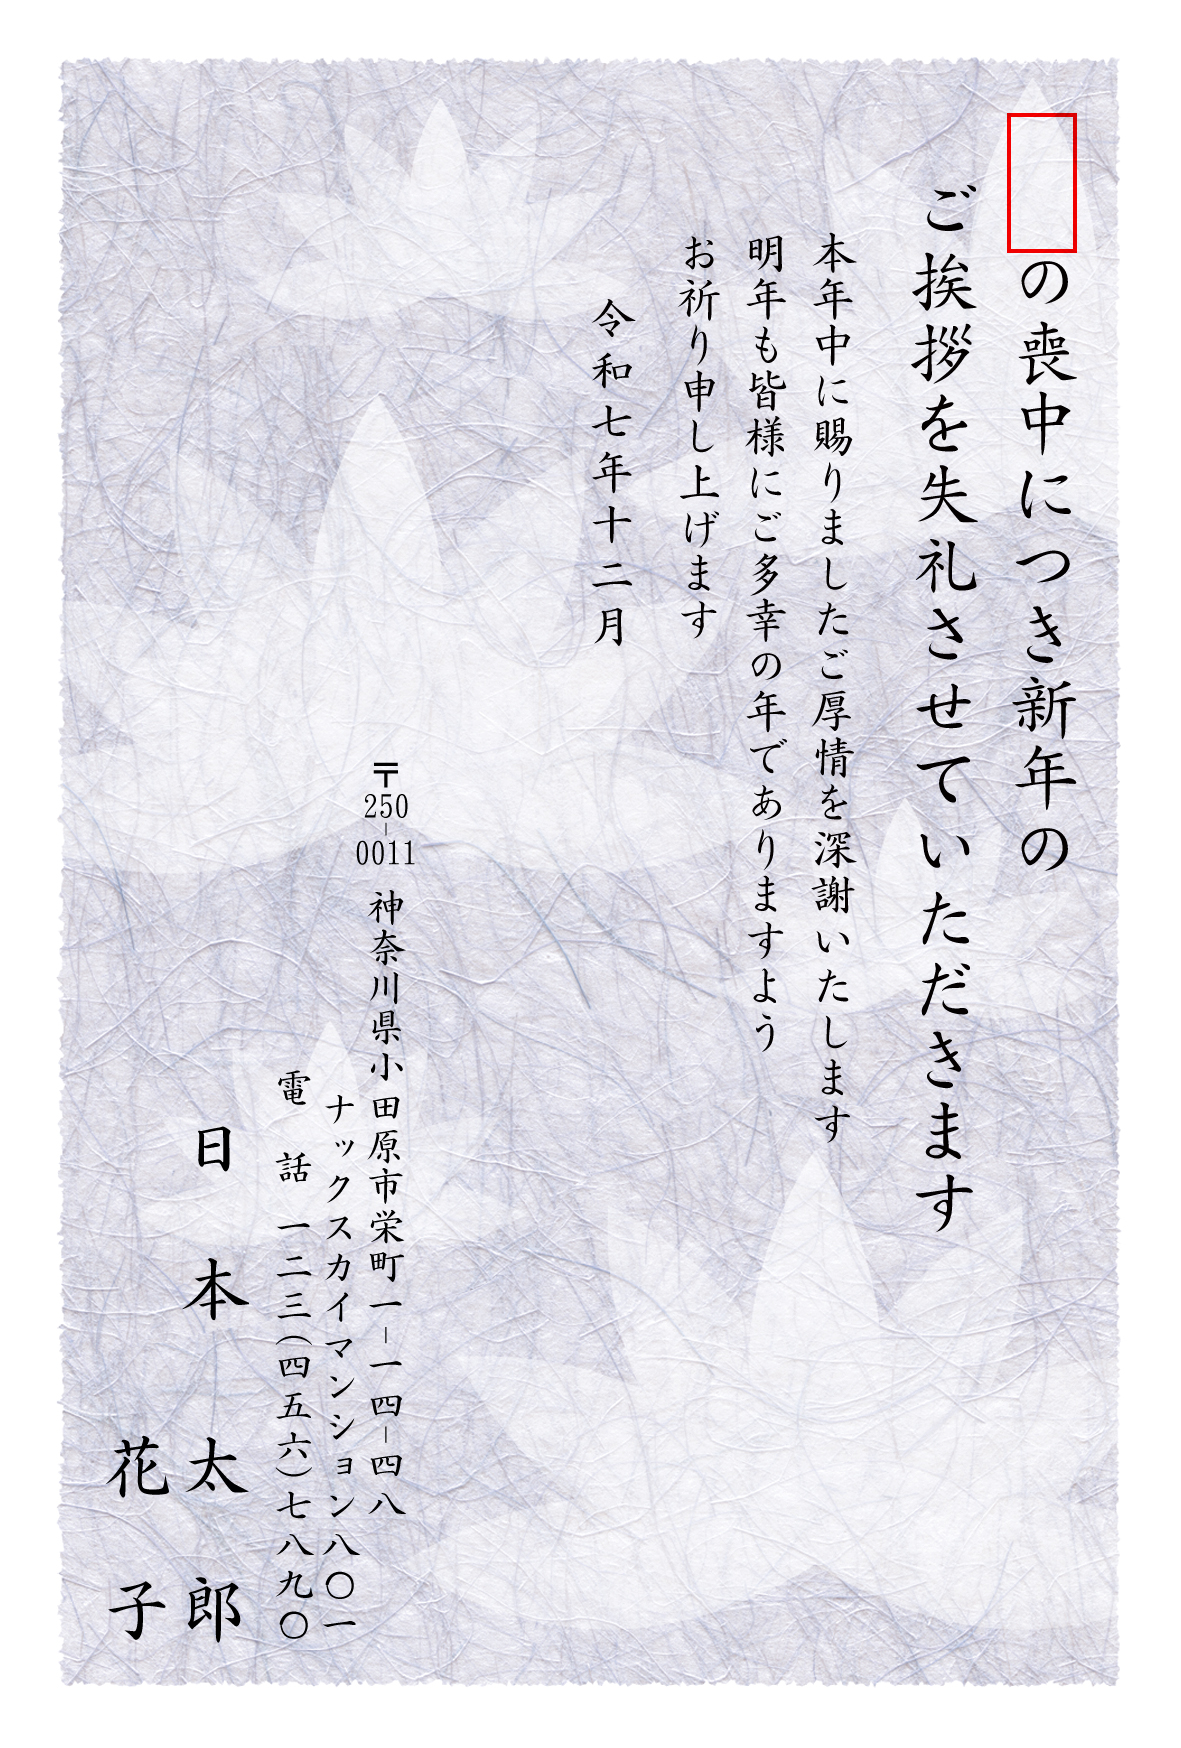 の喪中につき新年の
ご挨拶を失礼させていただきます
本年中に賜りましたご厚情を深謝いたします
明年も皆様にご多幸の年でありますよう
お祈り申し上げます
令和七年十二月
〒250-0011
神奈川県小田原市栄町一-一四-四八
ナックスカイマンション八〇一
電話 一二三(四五六)七八九〇
日本 太郎
花子